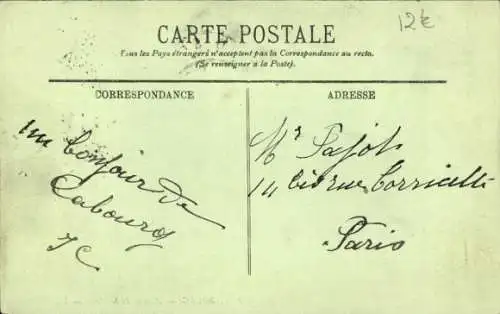 12€
CARTE POSTALE
Tous les Pays étrangers n'acceptent pas la Correspondance au recto.
(Se renseigner à la Poste).
CORRESPONDANCE
ADRESSE
un bonjour de
Cabourg
Mr Pajot
14 rue
Paris